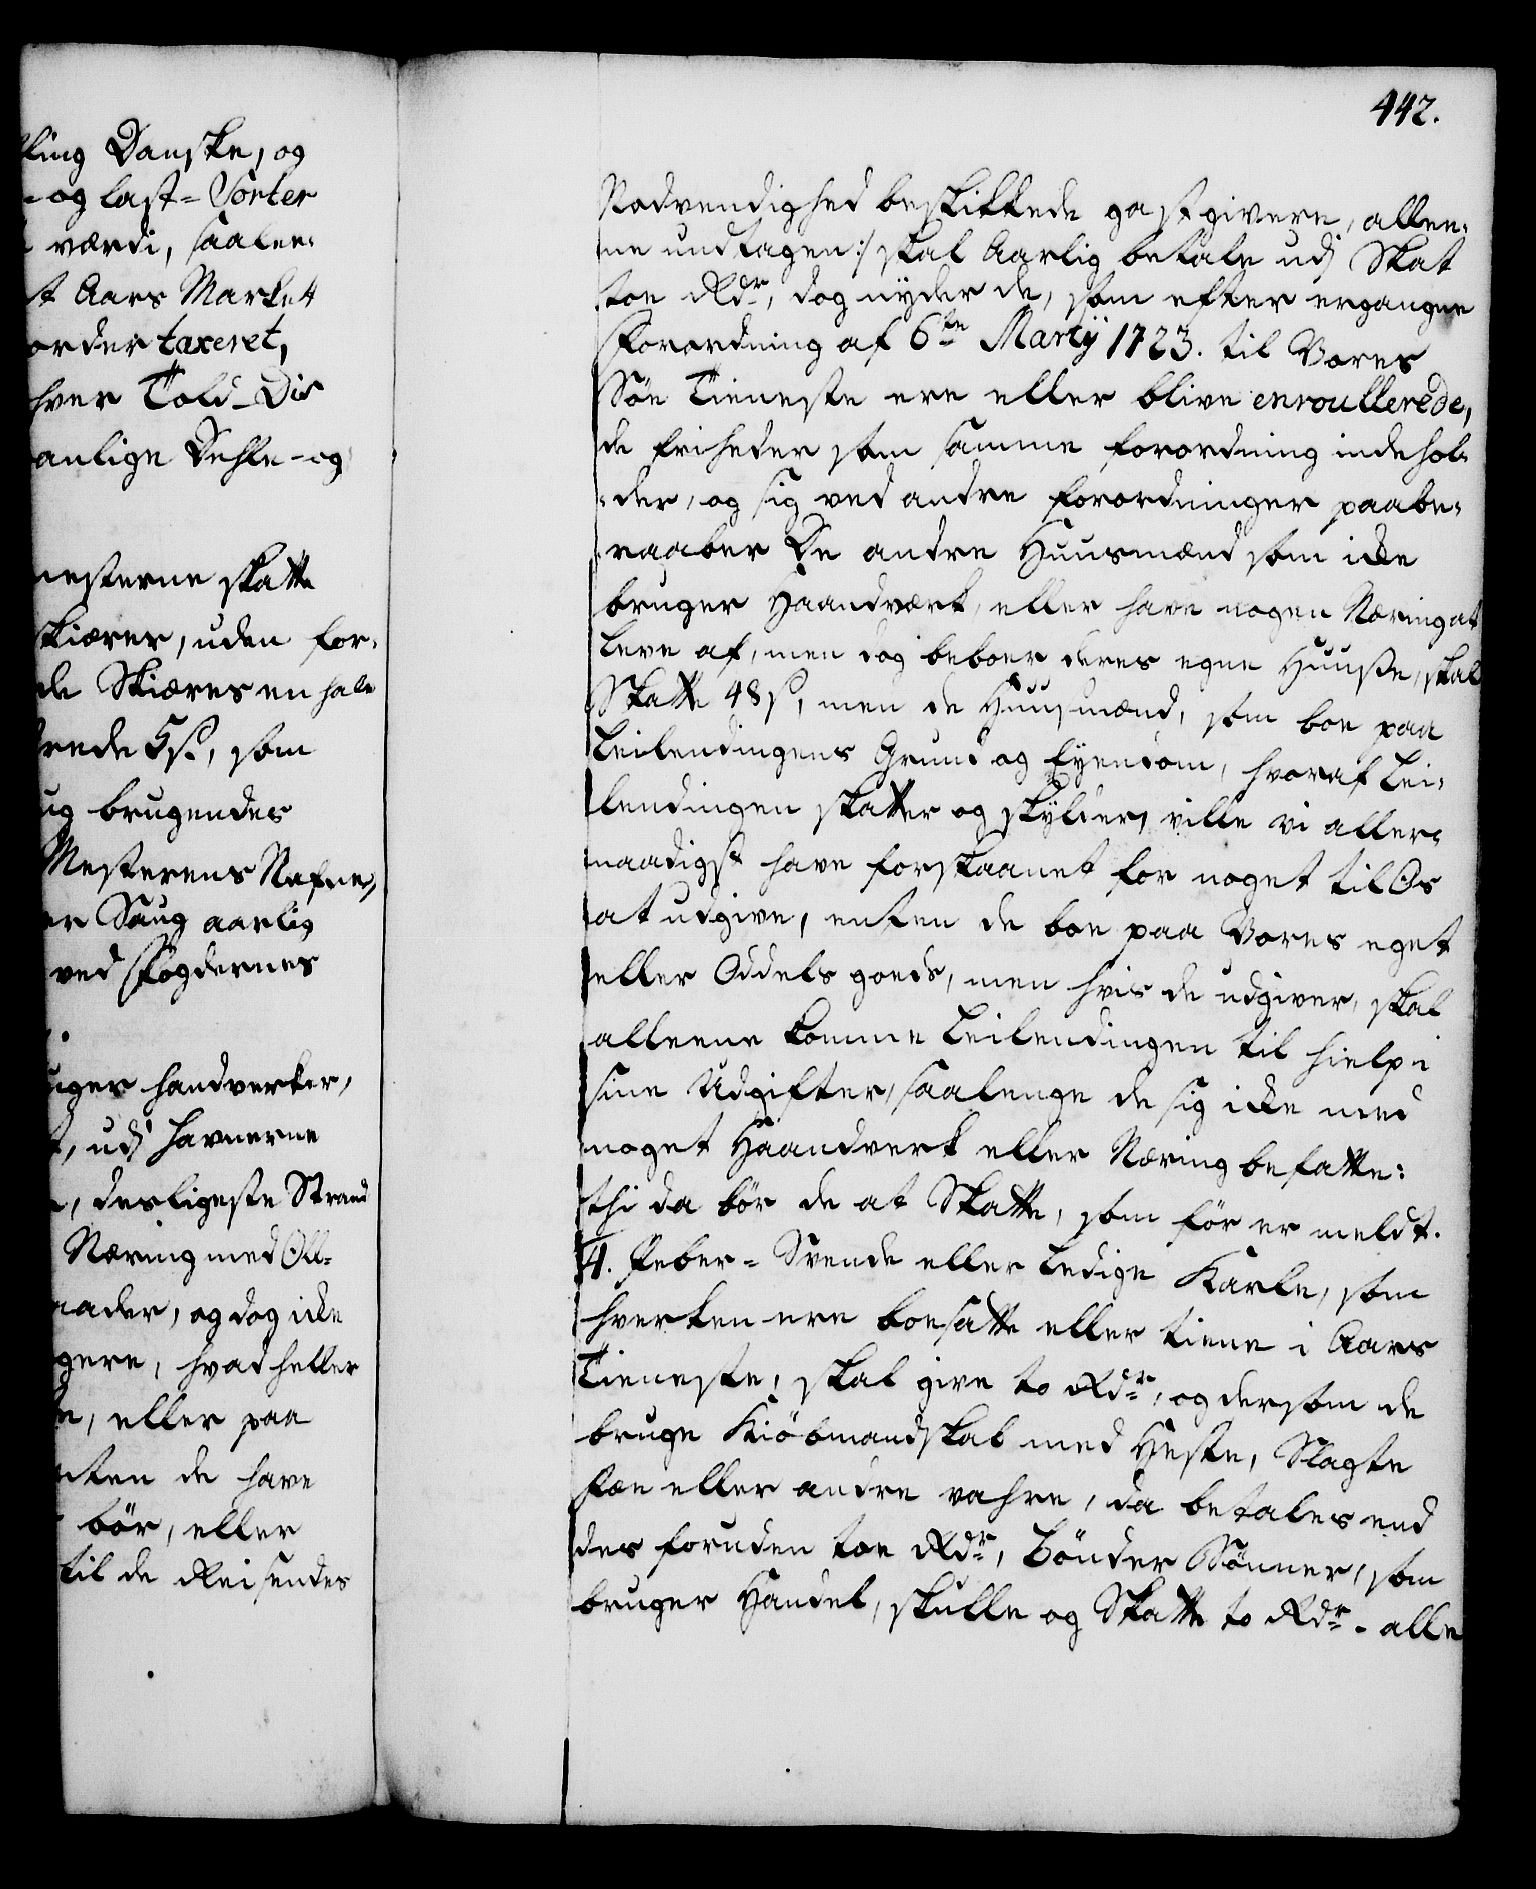 king Danske, og
- og last-Sorter
værdi, saalee:
t Aars Markett
order taxeret,
hver Told-Dis
anlige Dehle-og
mesterne skatte
skiærer, uden for:
de Skiæres en hale
rede 5 s., som
ug brugendes
Mesterens Nafne,
er Saug aarlig
ved Fogdernes
uger handverker,
t, udj havnerne
, desligeste Strand
Næring med Öll-
aader, og dog icke
gere, hvad heller
e, eller paa
nten de have
bör, eller
til de Reisendes
442.
Nødvendighed beskikkede gastgivere, allee:
:ne undtagen:/ skal Aarlig betale udj Skat
toe Rdr, dog nyder de, som efter ergangne
Forordning af 6te Martij 1723. til Vores
Söe Tieneste ere eller blive enroullerede,
de friheder som samme forordning indehol:
:der, og sig ved andre forordninger paabe:
:raaber De andre Huusmænd som icke
bruger Haandværk, eller have nogen Næring at
Leve af, men dog beboer deres egne Huuse, skal
Skatte 48 s, men de Huusmænd, som boe paa
Leilendingens Grund og Eyendom, hvoraf Lei:
lendingen skatter og skylder, ville vi aller:
:naadigst have forskaanet for noget til Os
at udgive, enten de boe paa Vores eget
eller Oddels goeds, men hvis de udgiver, skal
alleene komme Leilendingen til hielp i
sine Udgifter, saalenge de sig icke med
noget Haandverk eller Næring befatte:
thi da bör de at Skatte, som för er meldt.
4. Peber-Svende eller Ledige Karle, som
hverken ere boesatte eller tiene i Aars
Tieneste, skal give to Rdr, og dersom de
bruge Kiöbmandskab med Heste, Slagte
Fæe eller andre vahre, da betales end
des foruden toe Rdr, Bönder Sönner, som
bruger Handel, skulle og Skatte to Rdr. alle